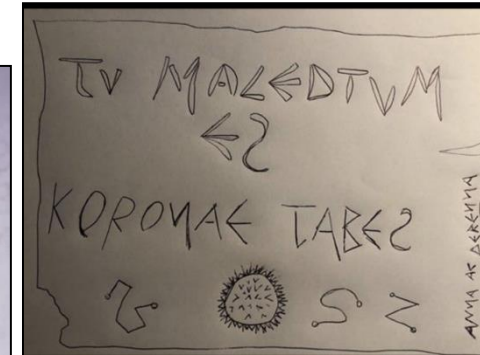 TV MALEDTVM
ES
KORONAE TABES
ANNA AC PERENNA